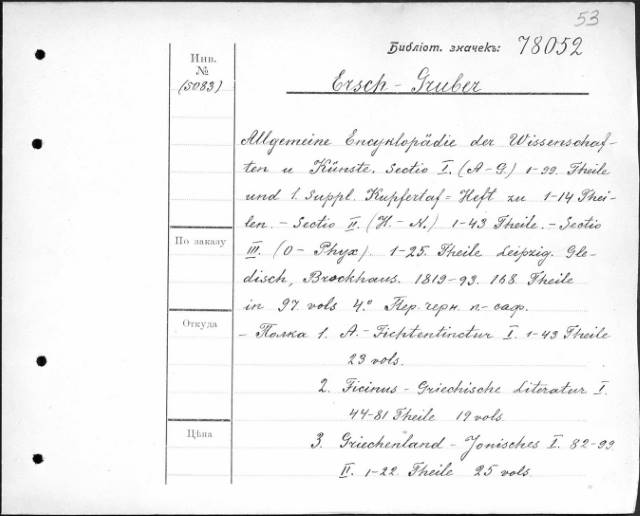 53
Библіот. значекъ: 78052
Инв.
№
(5083)
Ersch-Gruber
Allgemeine Encyklopädie der Wissenschaf-
ten u Künste. Sectio I. (A-G.) 1-99. Theile
und 1. Suppl. Kupfertaf=Heft zu 1-14 Thei-
len. - Sectio II. (H.-N.) 1-43 Theile. - Sectio
По заказу
III. (O-Phyx) 1-25. Theile Leipzig. Gle-
disch, Brockhaus. 1819-93. 168. Theile
in 97 vols 4.° Пер. черн. п-саф.
Откуда
- Полка 1. A.- Fichtentinctur I. 1-43 Theile
23 vols.
2. Ficinus - Griechische Literatur I.
44-81 Theile 19 vols.
Цѣна
3. Griechenland - Jonisches I. 82-99
II. 1-22. Theile 25 vols.